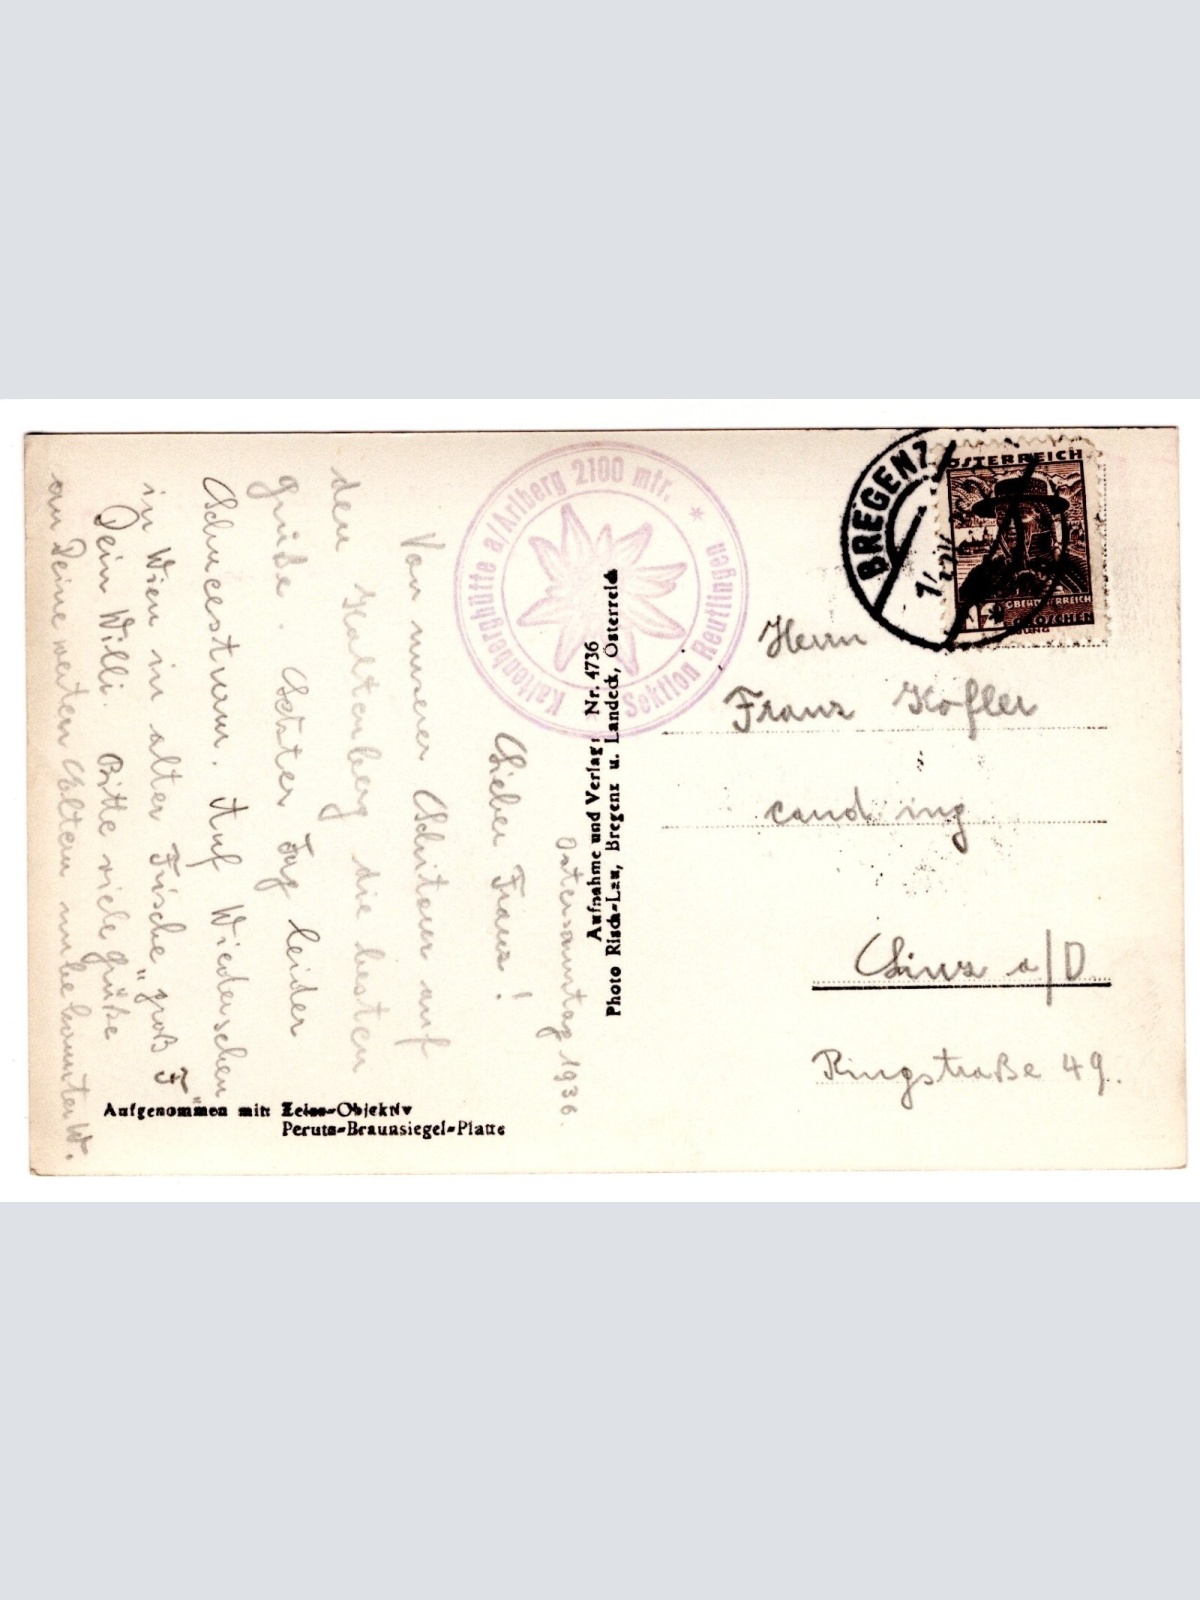 Ostersonntag 1936.
Lieber Franz!
Von unserer Schitour auf
dem Kaltenberg die besten
Grüße. Letzter Tag leider
Schneesturm. Auf Wiedersehen
in Wien in alter Frische „groß F“
Dein Willi. Bitte viele Grüße
an Deine werten Eltern unbekannter W.
Kaltenberghütte a/Arlberg 2100 mtr. *
Sektion Reutlingen
Aufnahme und Verlag: Nr. 4736
Photo Risch-Lau, Bregenz u. Landeck, Österreich
Aufgenommen mit: Zeiss-Objektiv
Perutz-Braunsiegel-Platte
BREGENZ
ÖSTERREICH
OBERÖSTERREICH
GROSCHEN
Herrn
Franz Kofler
cand ing
Linz a/D
Ringstraße 49.